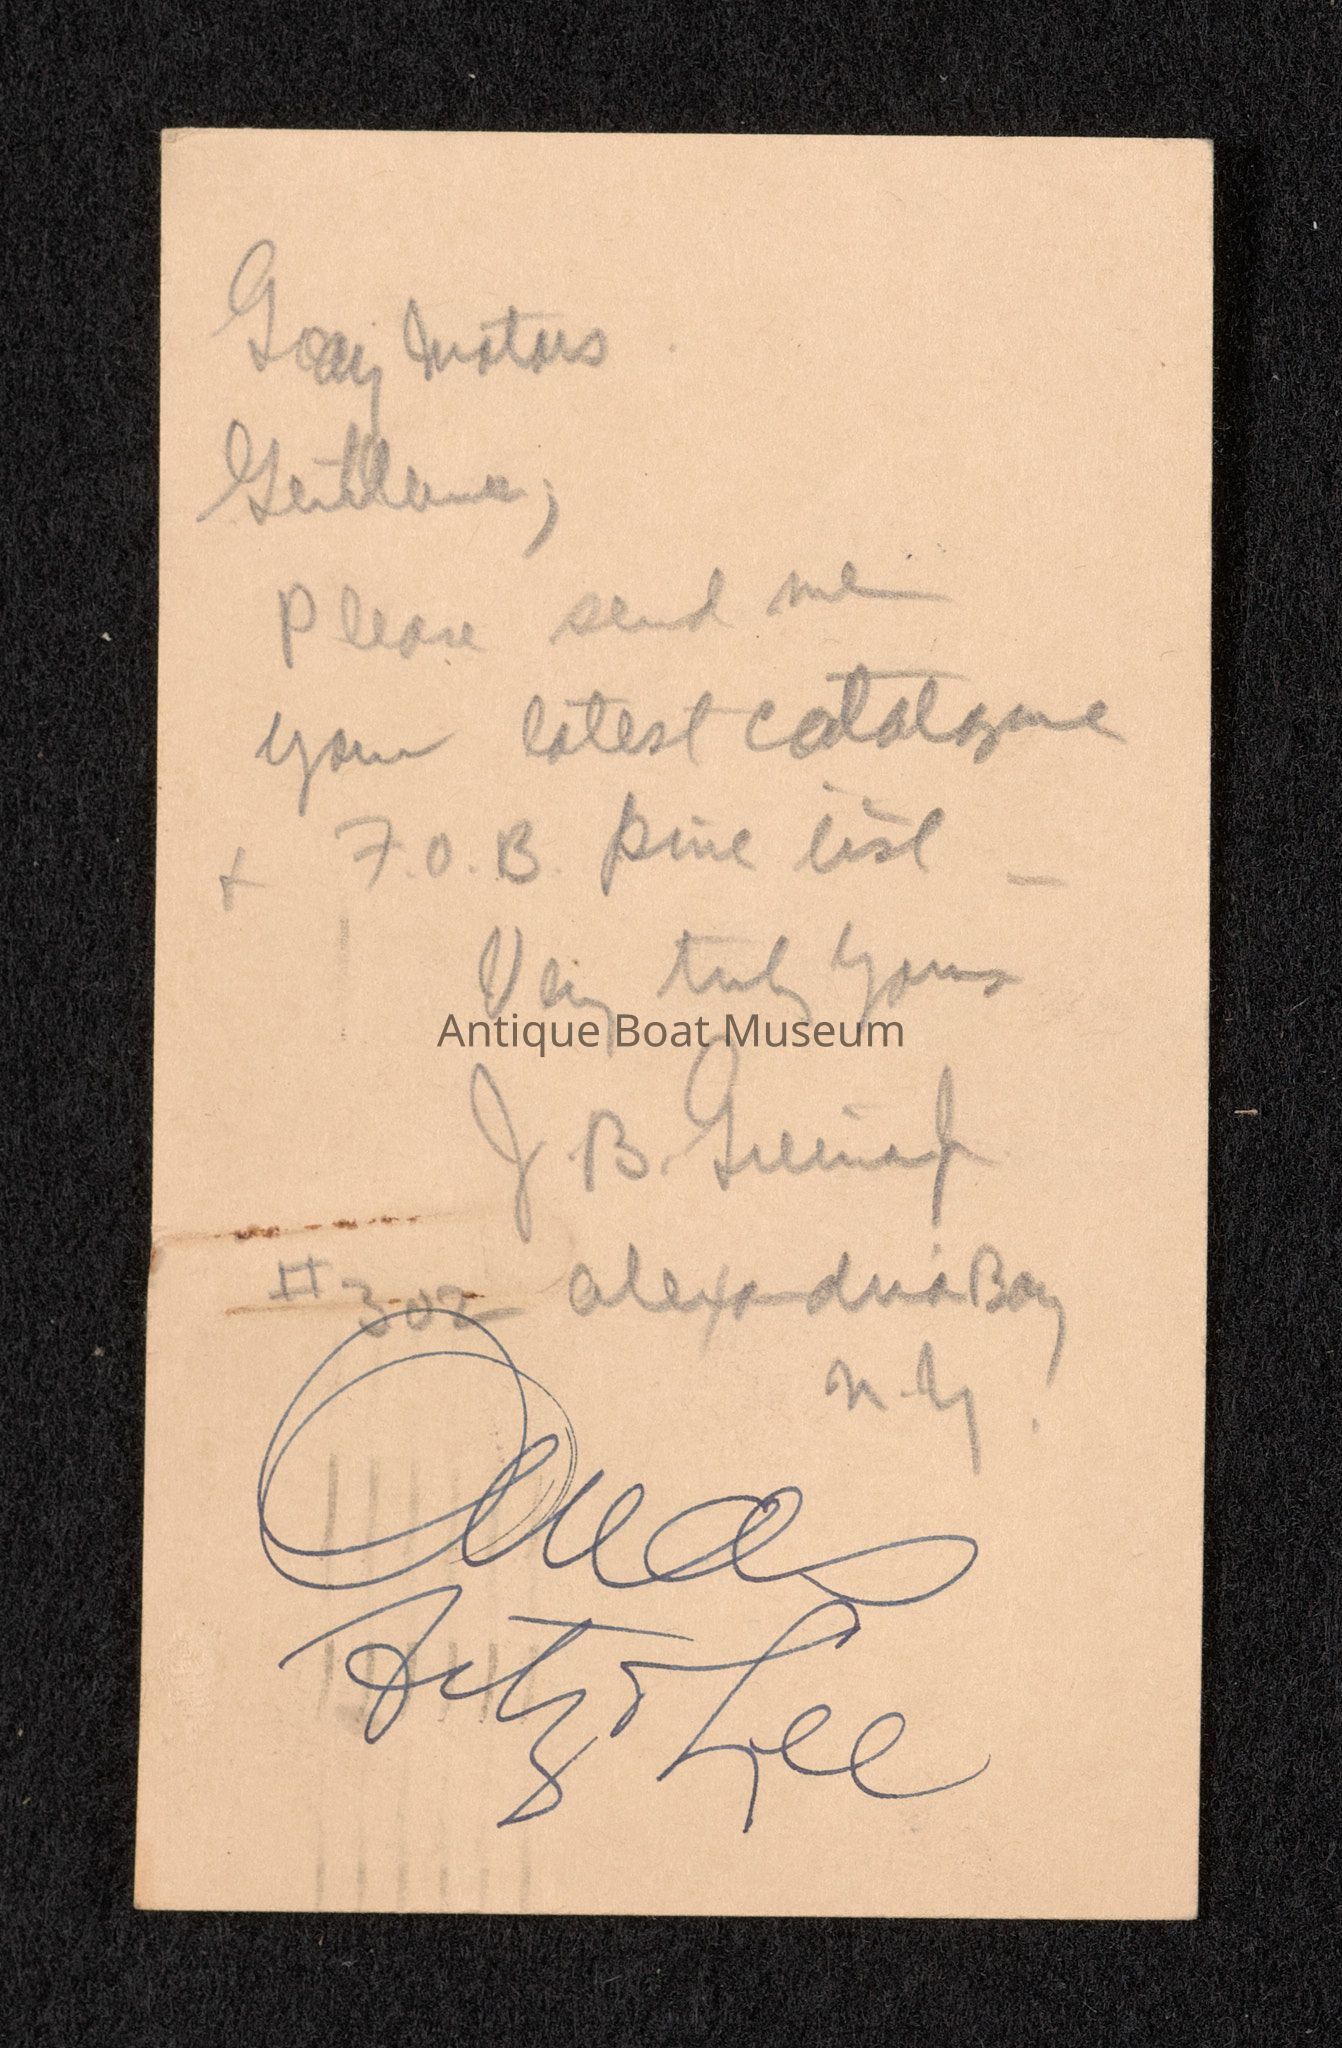 Gray Motors
Gentlemen;
Please send me
your latest catalogue
+ F.O.B. price list –
Very truly yours
Antique Boat Museum
J. B.
#302 Alexandria Bay
N.Y.
Lee